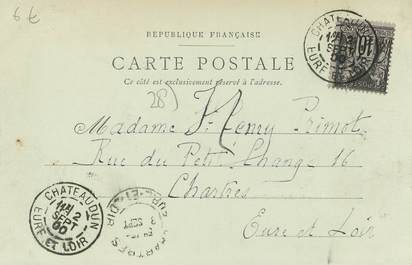 6 €
RÉPUBLIQUE FRANÇAISE
CARTE POSTALE
Ce côté est exclusivement réservé à l'adresse.
28)
CHATEAUDUN
2
SEPT
00
EURE ET LOIR
10
Madame Vᵉ Remy Primot
Rue du Petit Change 16
Chartres
Eure et Loir
CHATEAUDUN
2
SEPT
00
EURE ET LOIR
CHARTRES
3
SEPT
EURE-ET-LOIR